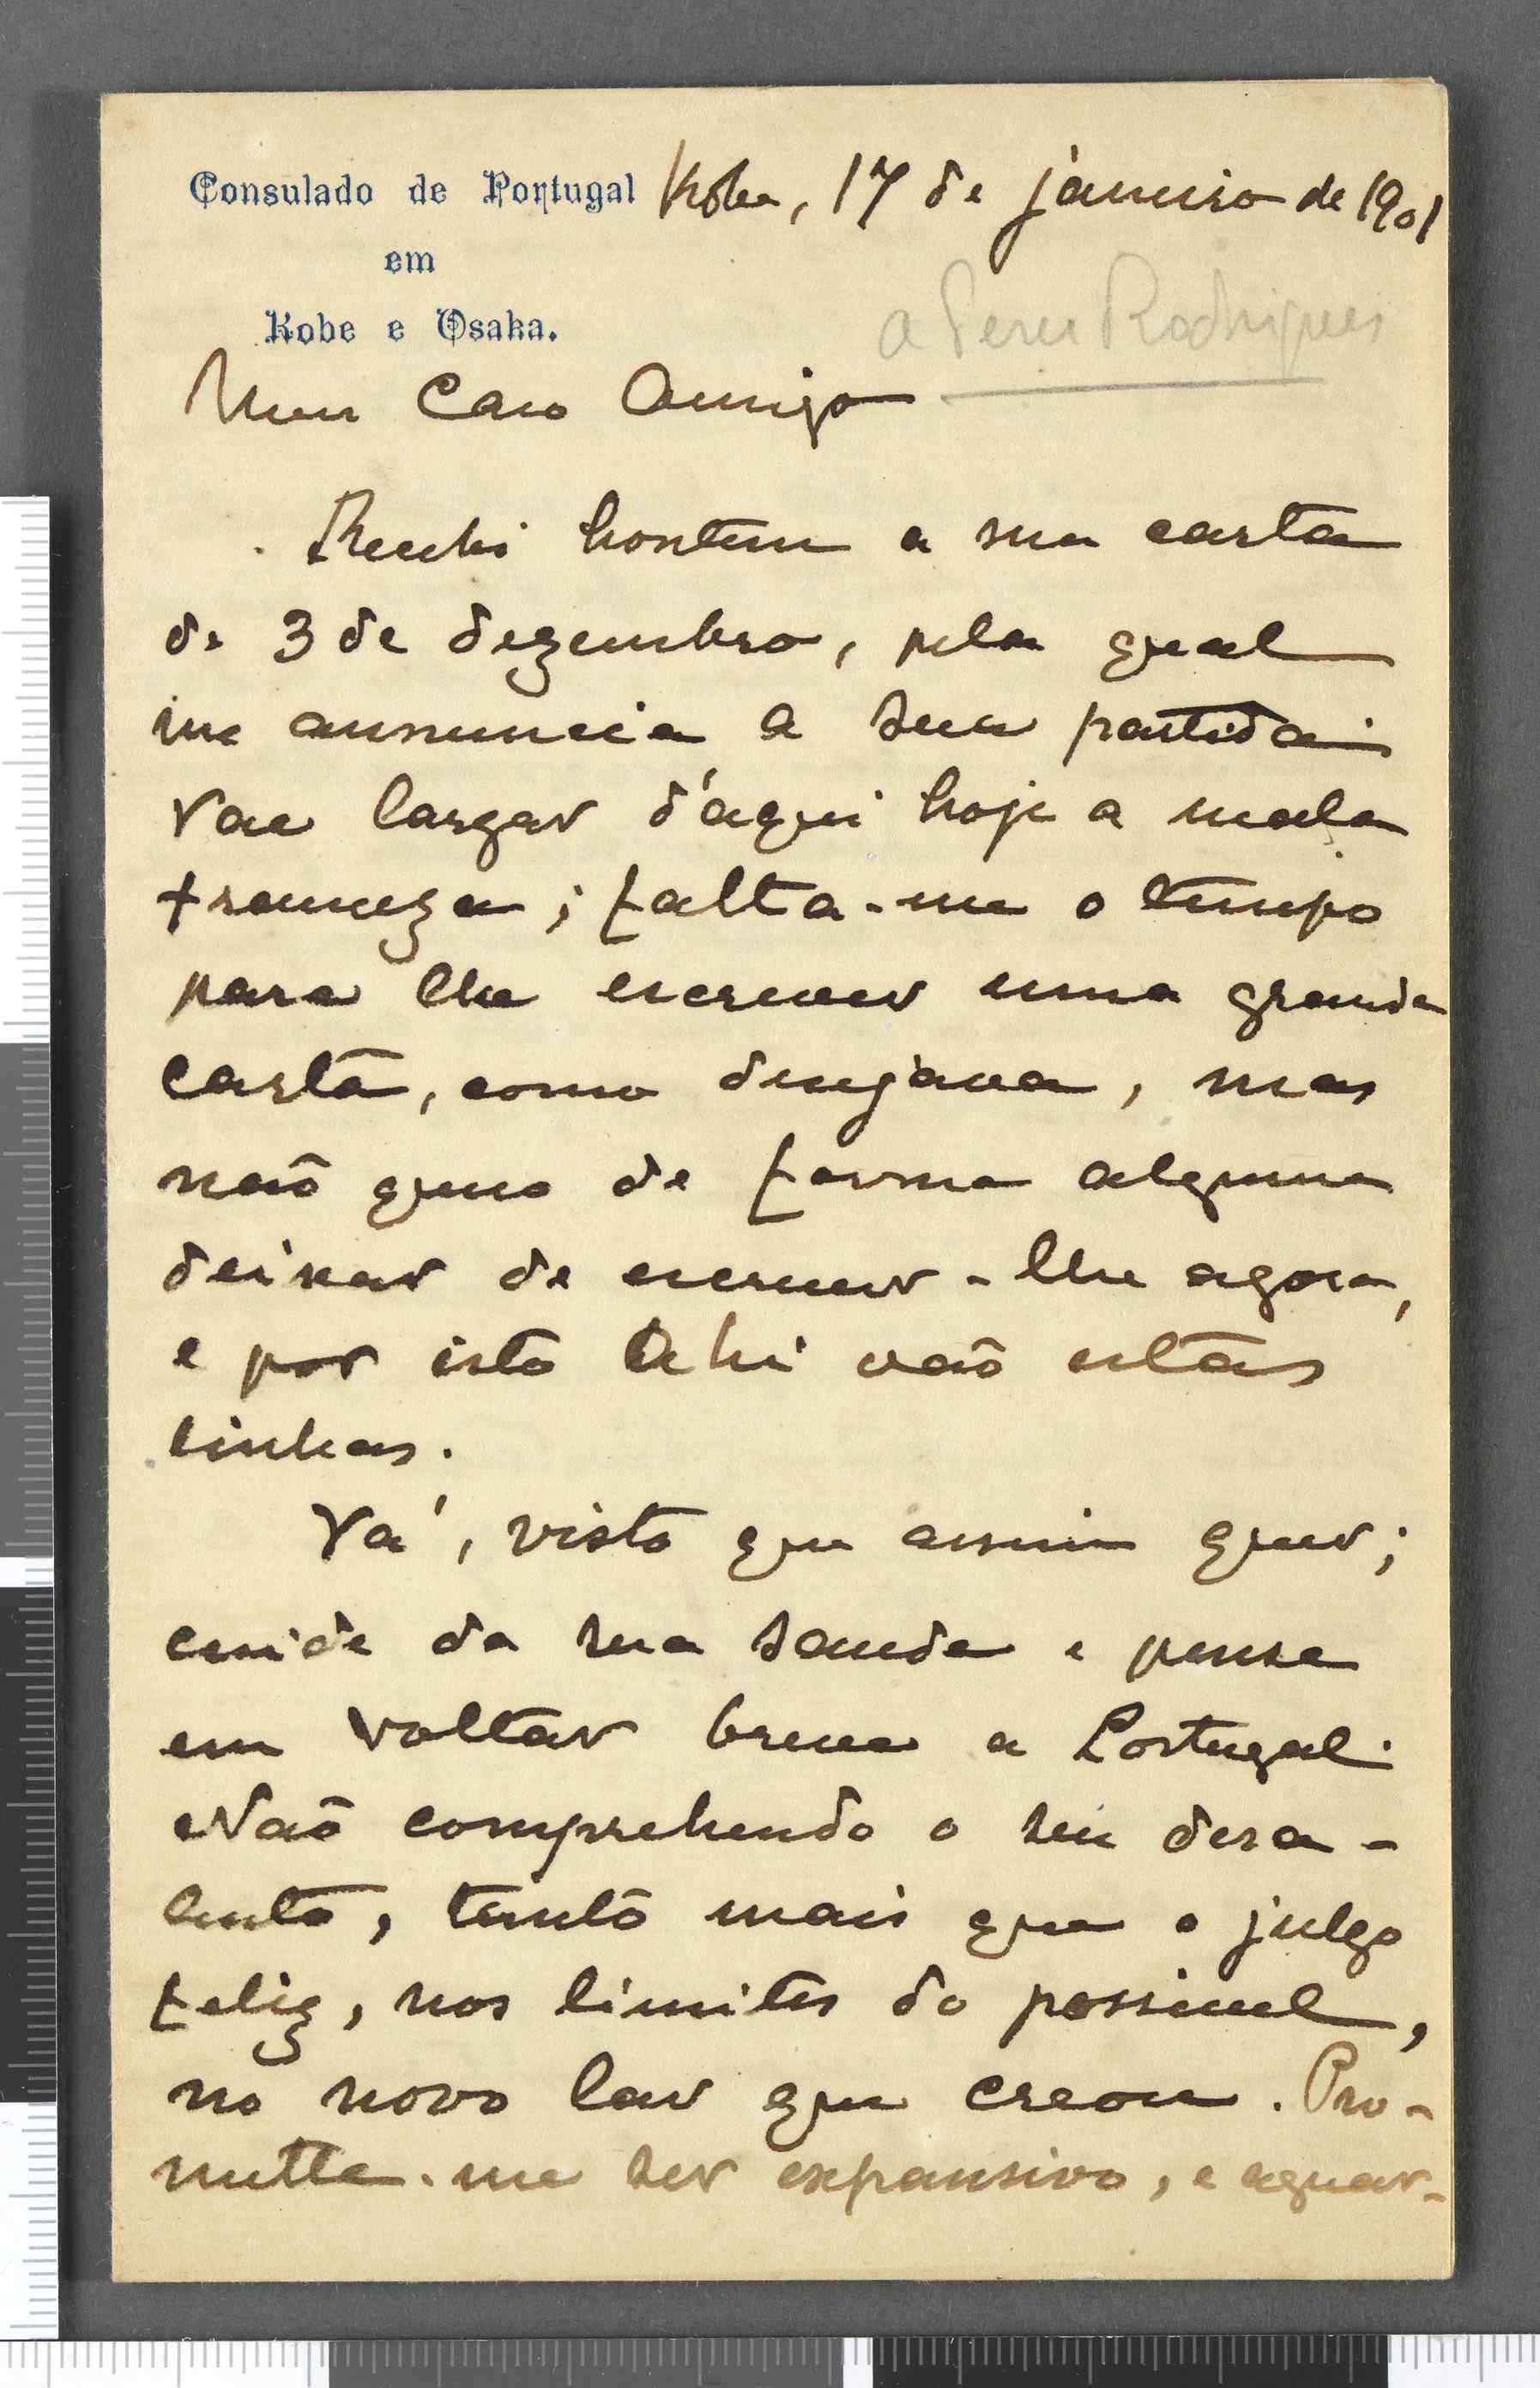 Consulado de Portugal
em
Kobe e Osaka.
Kobe, 17 de janeiro de 1901
a Peres Rodrigues
Meu Caro Amigo
Recebi hontem a sua carta
de 3 de dezembro, pela qual
me annuncia a sua partida.
Vae largar d'aqui hoje a mala
franceza; falta-me o tempo
para lhe escrever uma grande
carta, como desejava, mas
não quero de forma alguma
deixar de escrever-lhe agora,
e por isto ahi vão estas
linhas.
Vá, visto que assim quer;
cuide da sua saude e pense
em voltar breve a Portugal.
Não comprehendo o seu desa-
lento, tanto mais que o julgo
feliz, nos limites do possivel,
no novo lar que creou. Pro-
mette-me ser expansivo, e aguar-